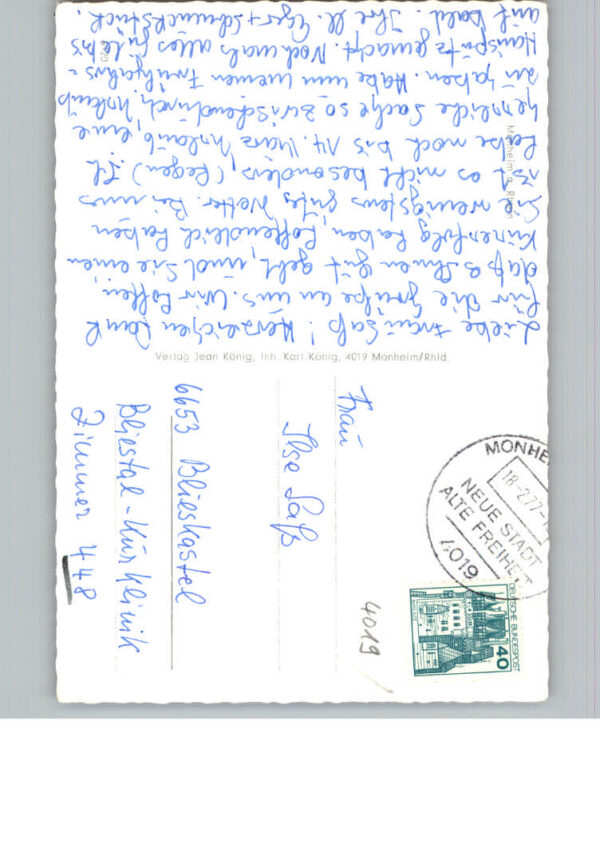 Liebe Frau Saß! Herzlichen Dank
für die Grüße an uns. Wir hoffen
daß es Ihnen gut geht, und Sie einen
Kurerfolg haben, hoffentlich haben
Sie wenigstens gutes Wetter. Bei uns
ist es nicht besonders, (Regen). Ich
habe noch bis 14. März Urlaub, eine
herrliche Sache so zwischendurch Urlaub
zu haben. Habe nun meinen Frühjahrs-
Hausputz gemacht. Nochmals alles Gute bis
auf bald. Ihre
Monheim a. Rhein
Verlag Jean König, Inh. Karl König, 4019 Monheim/Rhld.
Frau
Ilse Saß
6653 Blieskastel
Bliestal-Kurklinik
Zimmer 448
MONHE
18.-2.77-1
NEUE STADT
ALTE FREIHEIT
4019
DEUTSCHE BUNDESPOST
40
4019